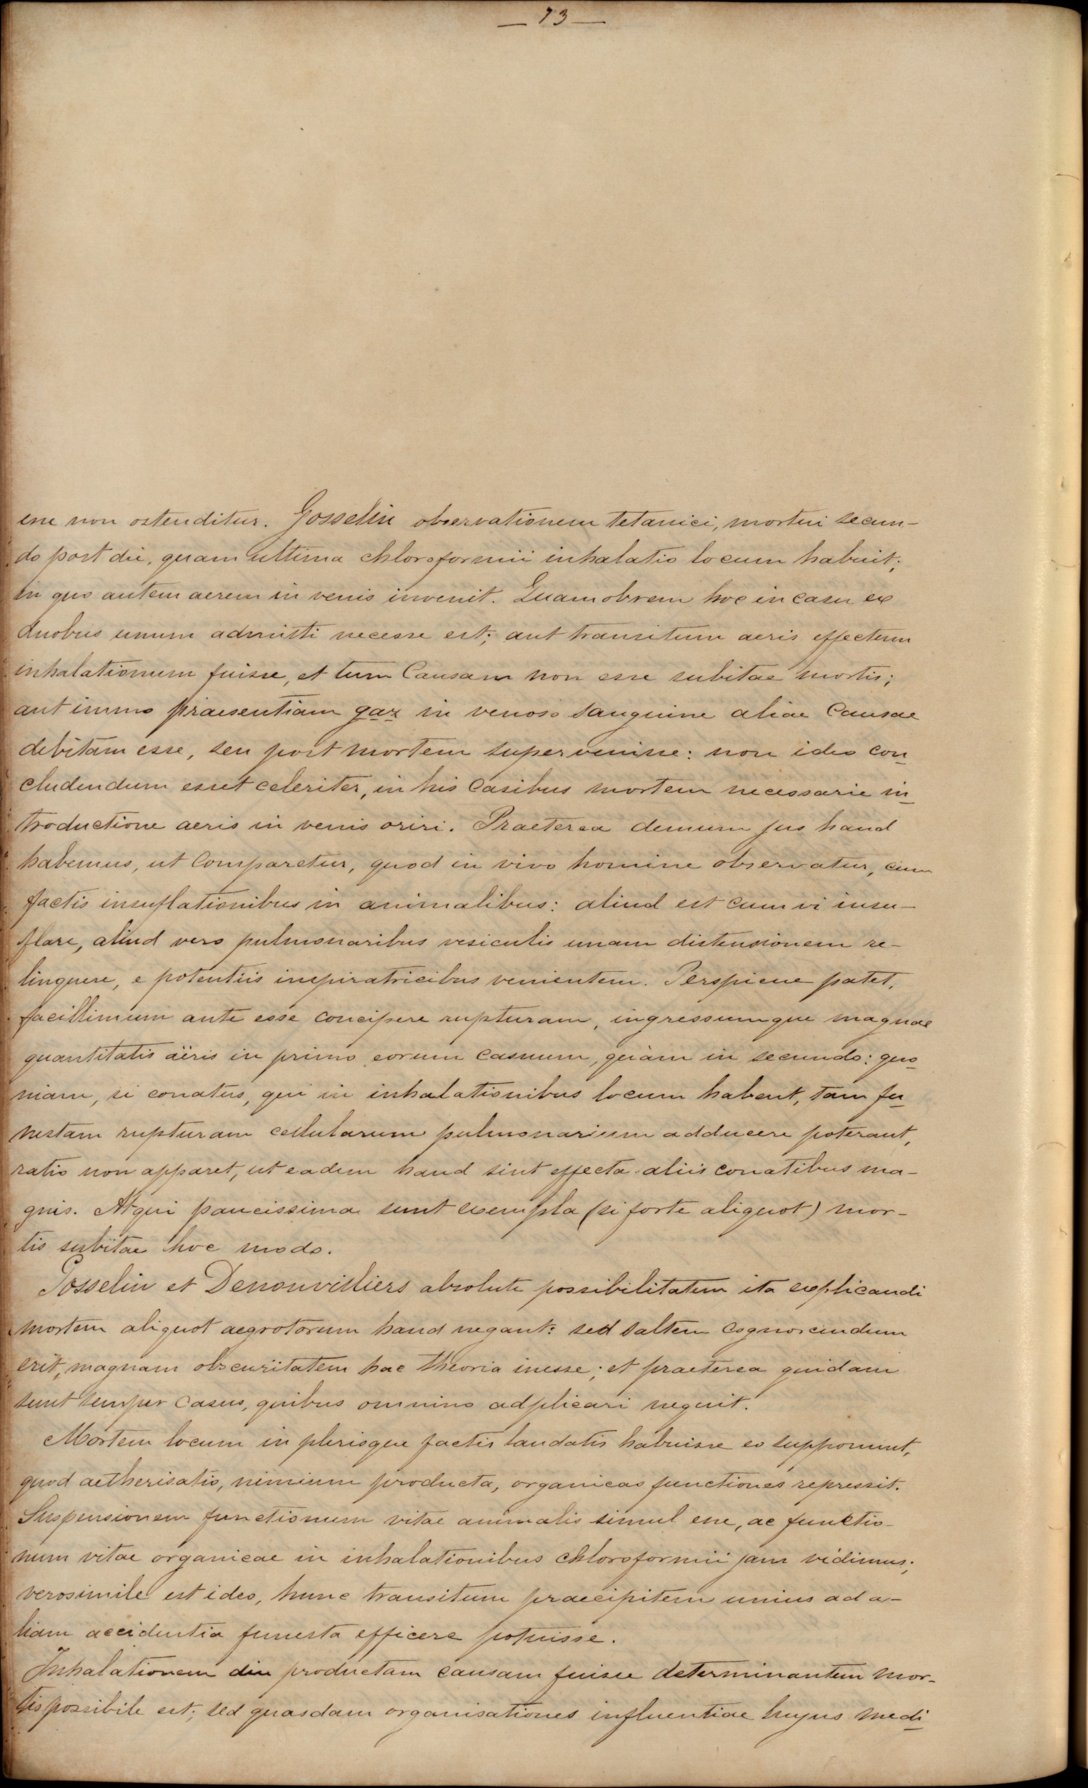 — 73 —
esse non ostenditur. Gosselin observationem tetanici, mortui secun-
do post die, quam ultima chloroformii inhalatio locum habuit;
in quo autem aerem in venis invenit. Quamobrem hoc in casu ex
duobus unum admitti necesse est; aut transitum aeris effectum
inhalationum fuisse, et tum causam non esse subitae mortis;
aut immo praesentiam gaz in venoso sanguine aliae causae
debitam esse, seu post mortem supervenisse: non ideo con
cludendum esset celeriter, in his casibus mortem necessarie in
troductione aeris in venis oriri. Praeterea demum jus haud
habemus, ut comparetur, quod in vivo homine observatur, cum
factis insuflationibus in animalibus: aliud est cum vi insu-
flare, aliud vero pulmonaribus vesiculis unam distensionem re-
linquere, e potentiis inspiratricibus venientem. Perspicue patet,
facillimum ante esse concipere rupturam, ingressumque magnae
quantitatis aëris in primo eorum casuum, quàm in secundo: quo
niam, si conatus, qui in inhalationibus locum habent, tam fu
nestam rupturam cellularum pulmonarium adducere poterant,
ratio non apparet, ut eadem haud sint effecta aliis conatibus ma-
gnis. Atqui paucissima sunt exempla (si forte aliquot) mor-
tis subitae hoc modo.
Gosselin et Denonvilliers absolute possibilitatem ita explicandi
mortem aliquot aegrotorum haud negant: sed saltem cognoscendum
erit, magnam obscuritatem hac theoria inesse; et praeterea quidam
sunt semper casus, quibus omnino adplicari nequit.
Mortem locum in plerisque factis laudatis habuisse eo supponunt,
quod aetherisatio, nimium producta, organicas functiones repressit.
Suspensionem functionum vitae animalis simul esse, ac functio-
num vitae organicae in inhalationibus chloroformii jam vidimus;
verosimile est ideo, hunc transitum praecipitem unius ad a-
liam accidentia funesta efficere potuisse.
Inhalationem diu productam causam fuisse determinantem mor-
tis possibile est; sed quasdam organisationes influentiae hujus medi